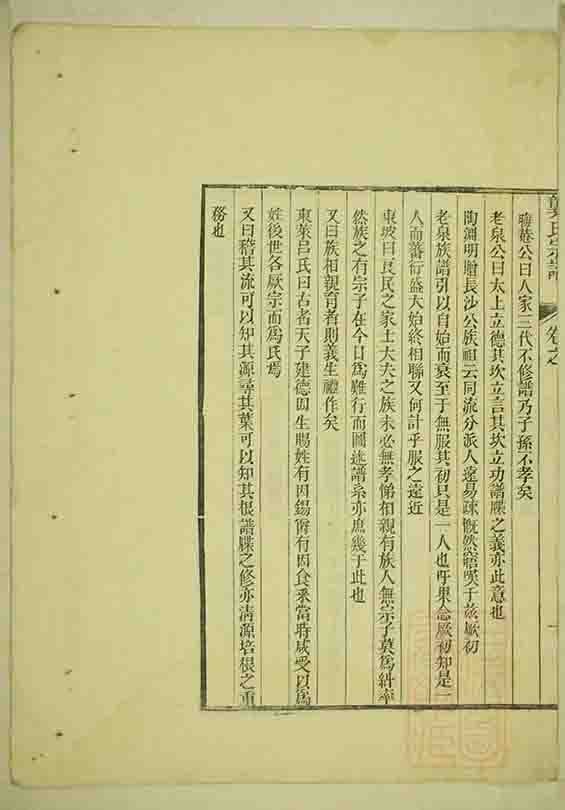 葉氏宗譜 卷之一
晦菴公曰人家三代不修譜乃子孫不孝矣
老泉公曰太上立德其次立言其次立功譜牒之義亦此意也
陶淵明贈長沙公族祖云同流分派人遠易疎慨然寤嘆于茲厥初
老泉族譜引以自始而衰至于無服其初只是一人也吁果念厥初知是一
人而蕃衍盛大始終相聯又何計乎服之遠近
東坡曰良民之家士大夫之族未必無孝悌相親有族人無宗子莫爲糾率
然族之有宗子在今日爲難行而圖述譜系亦庶幾于此也
又曰族相親育者則義生禮作矣
東萊呂氏曰古者天子建德因生賜姓有因錫爵有因食釆當時咸受以爲
姓後世各厥宗而爲氏焉
又曰稽其流可以知其源尋其葉可以知其根譜牒之修亦淸源培根之重
務也